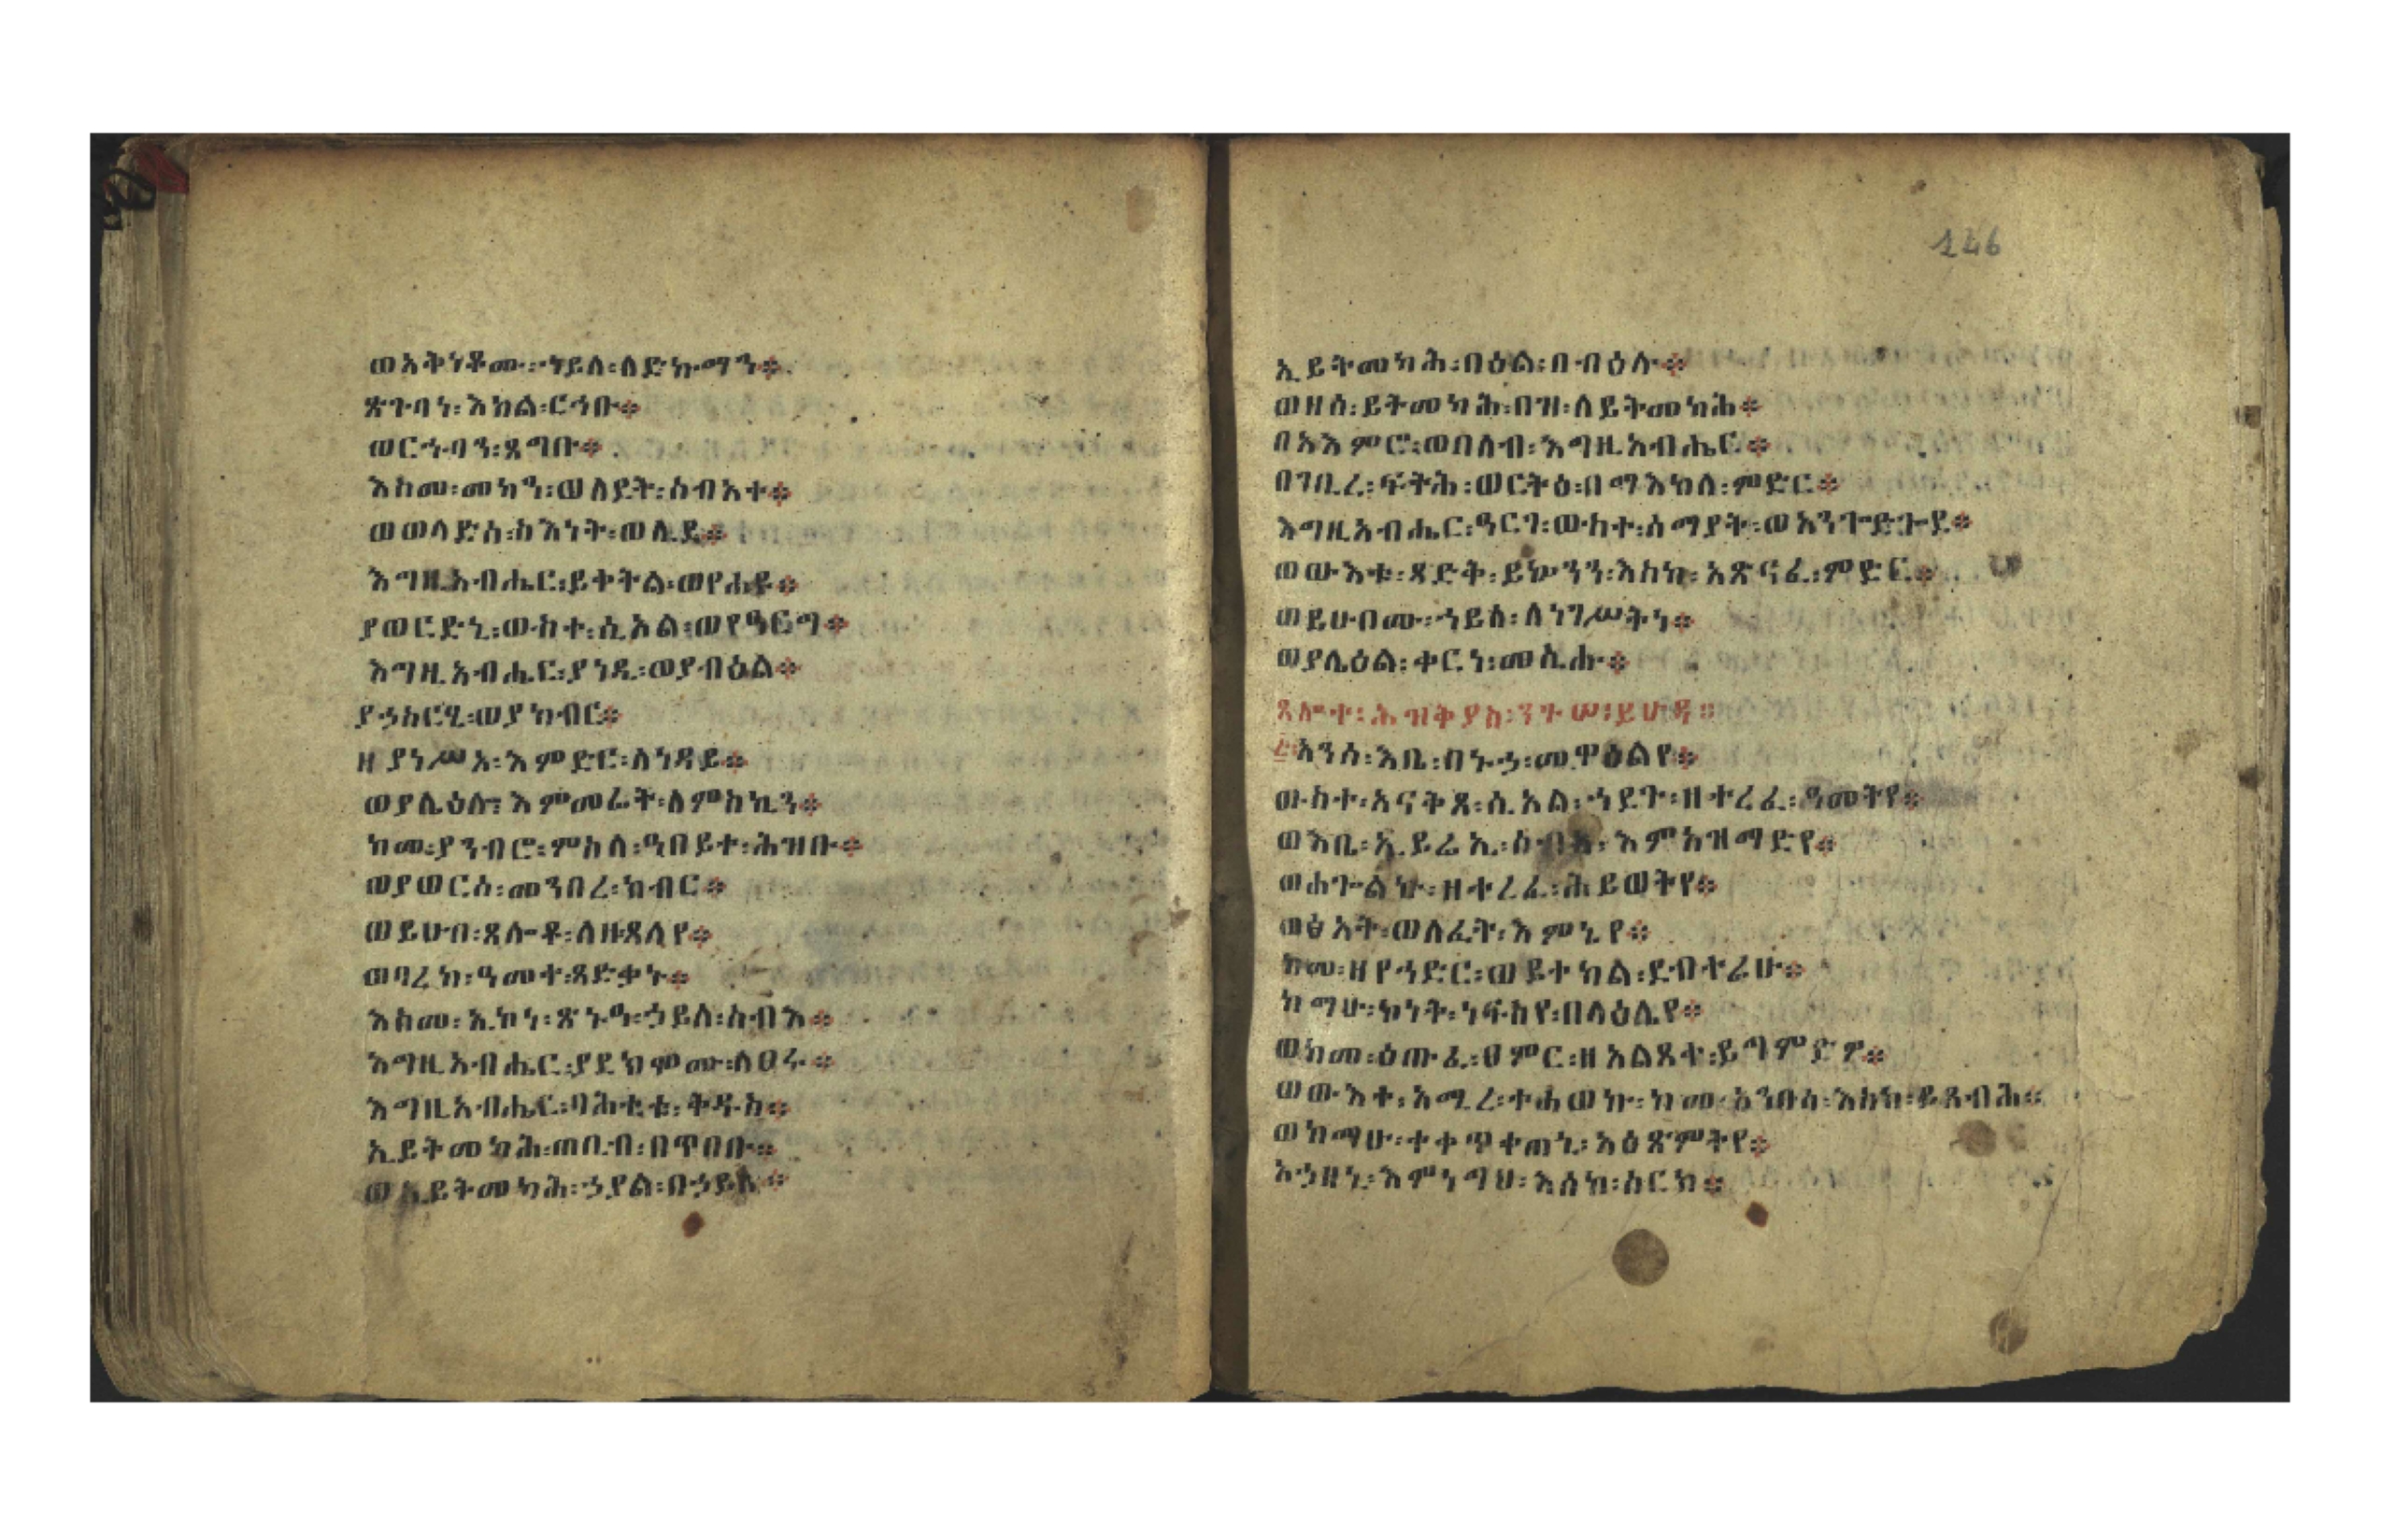 ወአቅነቶሙ፡ኀይለ፡ለድኩማን፨
ጽጉባነ፡እክል፡ርኅቡ፨
ወርኁባን፡ጸግቡ፨
እስመ፡መካን፡ወለደት፡ስብአተ፨
ወወላድሰ፡ስእነት፡ወሊደ፨
እግዚአብሔር፡ይቀትል፡ወየሐዩ፨
ያወርድኒ፡ውስተ፡ሲኦል፡ወየዓርግ፨
እግዚአብሔር፡ያነዲ፡ወያብዕል፨
ያኃስርሂ፡ወያከብር፨
ዘያነሥኦ፡እምድር፡ለነዳይ፨
ወያሌዕሎ፡እምመሬት፡ለምስኪን፨
ከመ፡ያንብሮ፡ምስለ፡ዓበይተ፡ሕዝቡ፨
ወያወርሶ፡መንበረ፡ክብር፨
ወይሁብ፡ጸሎቶ፡ለዘጸለየ፨
ወባረከ፡ዓመተ፡ጻድቃኑ፨
እስመ፡ኢኮነ፡ጽኑዓ፡ኃይለ፡ስብእ፨
እግዚአብሔር፡ያደክምሙ፡ለፀሩ፨
እግዚአብሔር፡ባሕቲቱ፡ቅዱስ፨
ኢይትመካሕ፡ጠቢብ፡በጥበቡ፨
ወኢይትመካሕ፡ኃያል፡በኃይሉ፨
146
ኢይትመካሕ፡በዕል፡በብዕሉ፨
ወዘሰ፡ይትመካሕ፡በዝ፡ለይትመካሕ፨
በአእምሮ፡ወበለብዎ፡እግዚአብሔር፨
በገቢረ፡ፍትሕ፡ወርትዕ፡በማእከለ፡ምድር፨
እግዚአብሔር፡ዓርገ፡ውስተ፡ሰማያት፡ወአንጐድጐደ፨
ወውእቱ፡ጻድቅ፡ይኴንን፡እስከ፡አጽናፈ፡ምድር፨
ወይሁቦሙ፡ኀይለ፡ለነገሥትነ፨
ወያሌዕል፡ቀርነ፡መሲሑ፨
ጸሎተ፡ሕዝቅያስ፡ንጉሠ፡ይሁዳ፨
አንሰ፡እቤ፡በኑኃ፡መዋዕልየ፨
ውስተ፡አናቅጸ፡ሲኦል፡ኀደጉ፡ዘተረፈ፡ዓመትየ፨
ወእቤ፡ኢይሬኢ፡ስብአ፡እምአዝማድየ፨
ወሐጐልኩ፡ዘተረፈ፡ሕይወትየ፨
ወፅአት፡ወለፈት፡እምኔየ፨
ከመ፡ዘየኀድር፡ወይተክል፡ደብተራሁ፨
ከማሁ፡ኮነት፡ነፍስየ፡በላዕሌየ፨
ወከመ፡ዕጡፈ፡ፀምር፡ዘአልጸቀ፡ይግምድዎ፨
ወውእተ፡አሚረ፡ተሐወኩ፡ከመ፡አንበሳ፡እስከ፡ይጸብሕ፨
ወከማሁ፡ተቀጥቀጠኒ፡አዕጽምትየ፨
አኃዘኒ፡እምነግህ፡እስከ፡ሰርክ፨